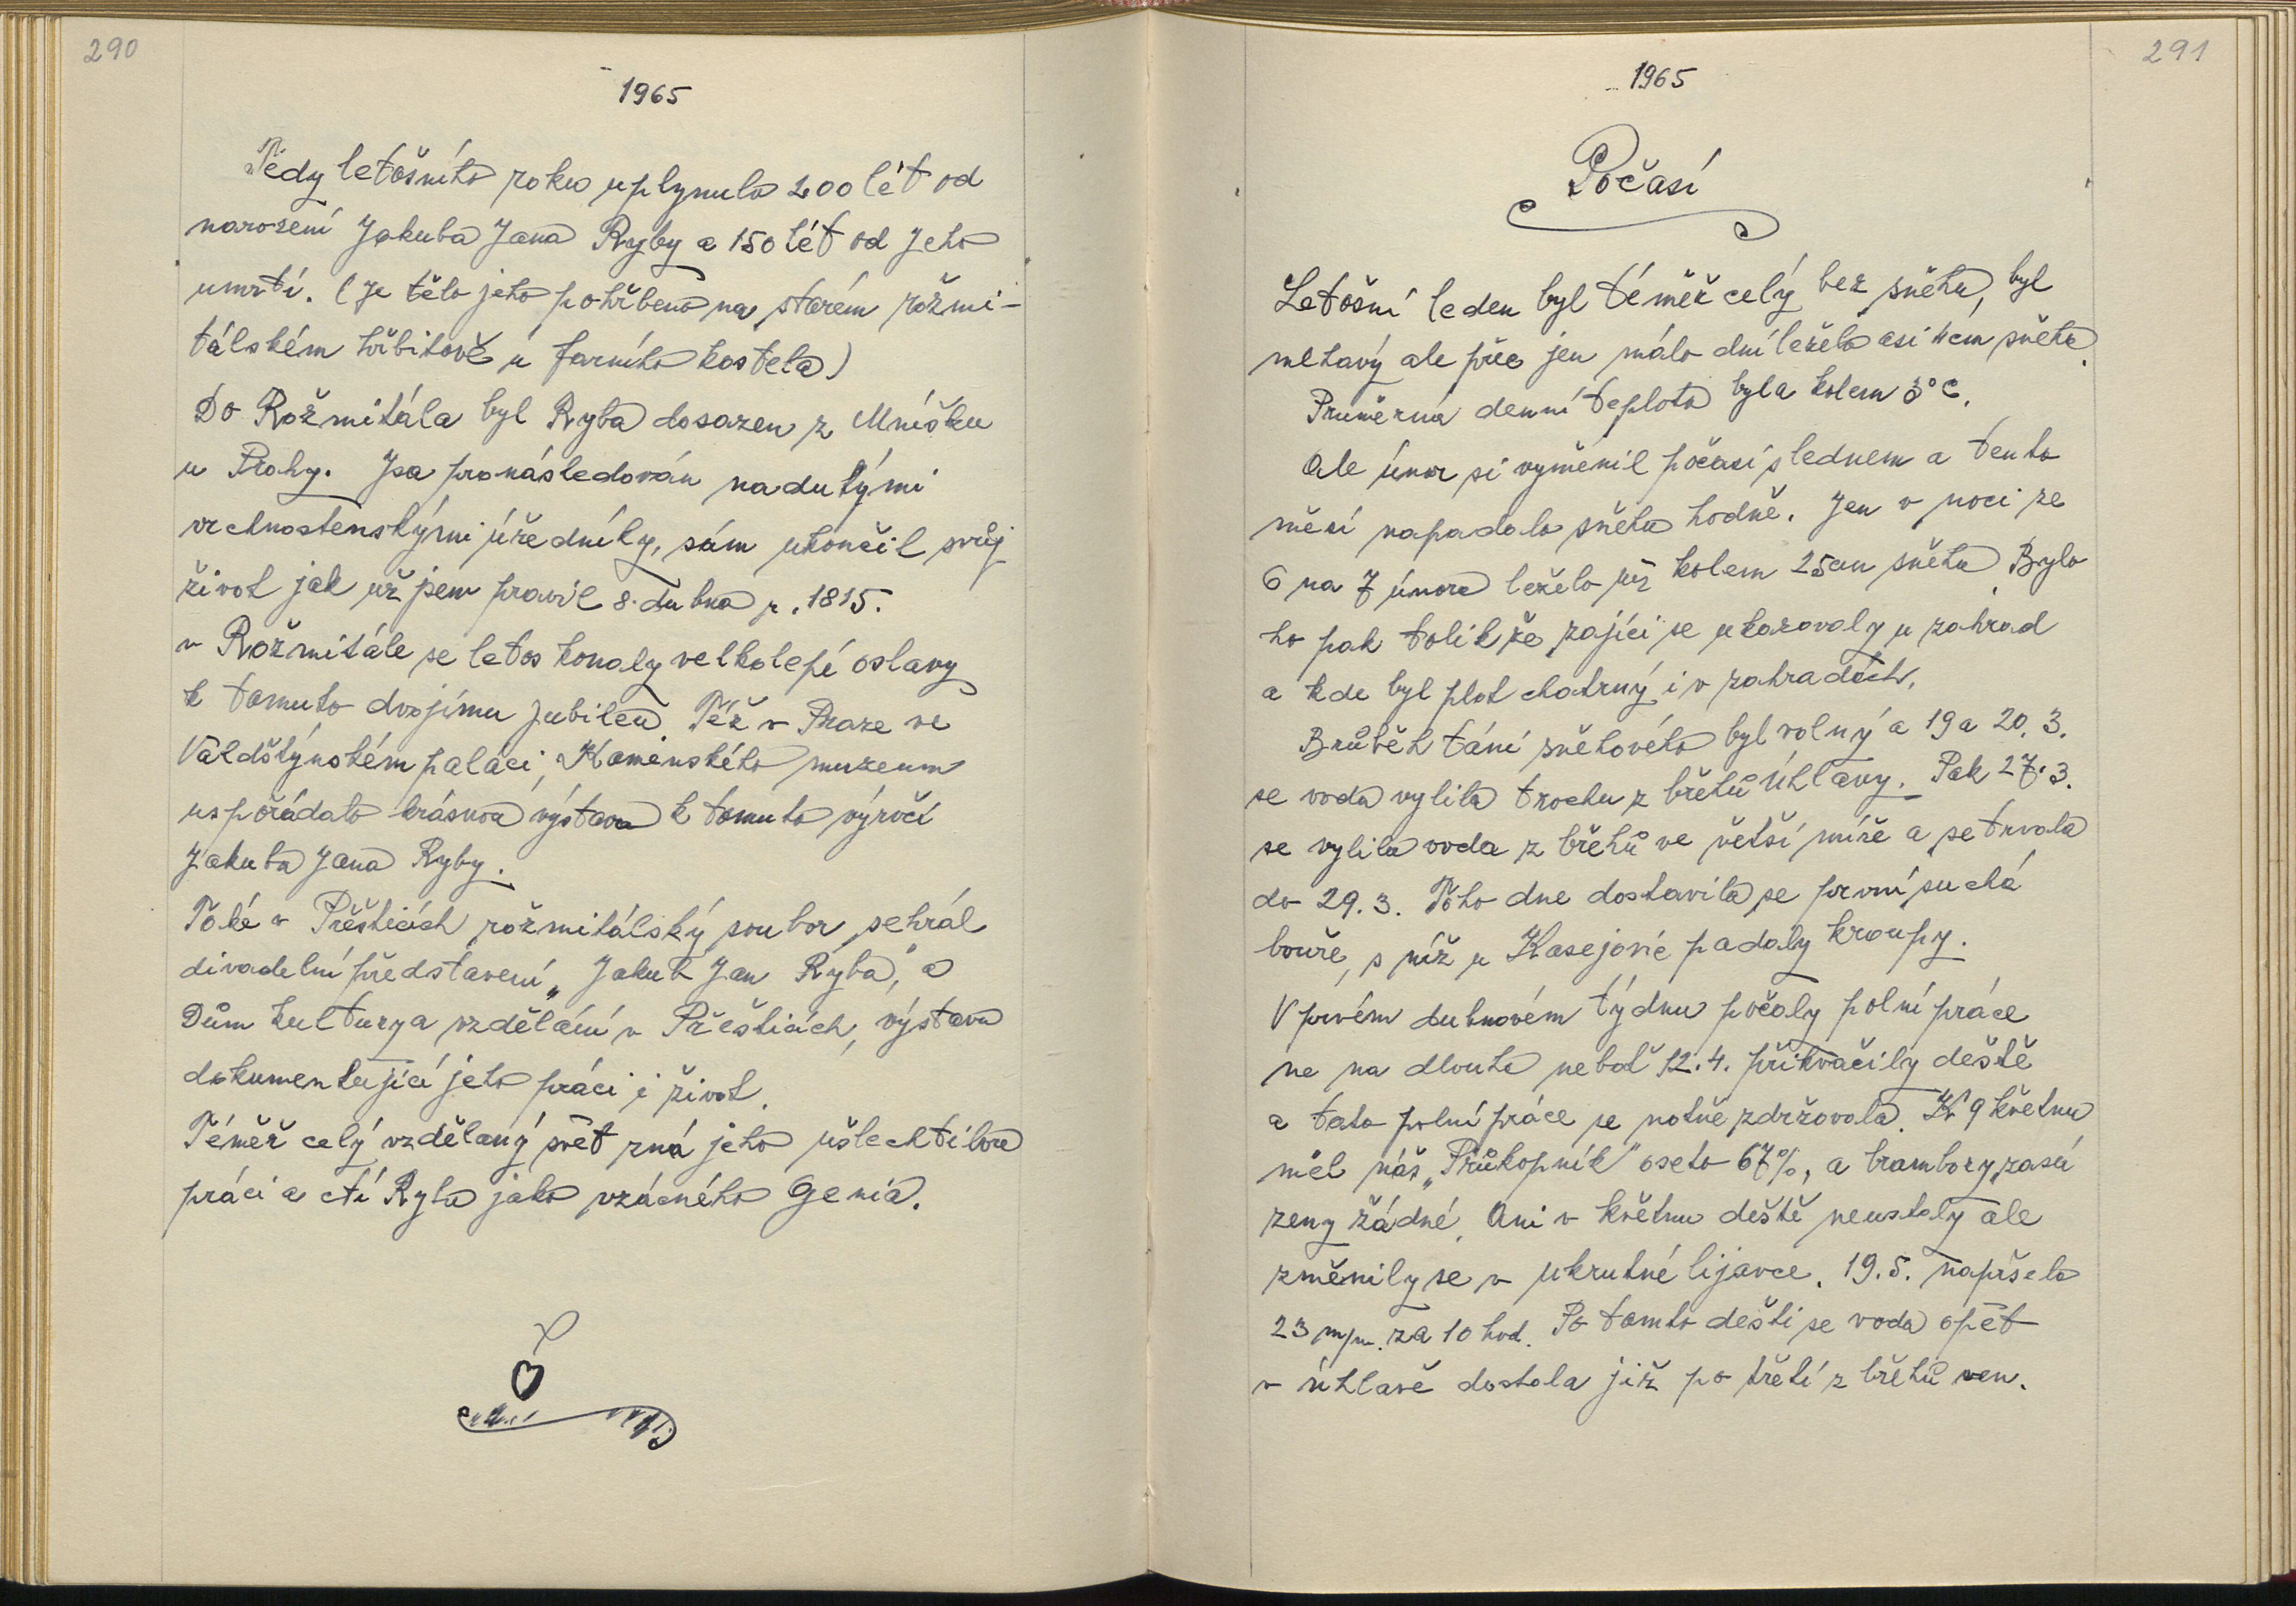 290
1965
Tedy letošního roku uplynulo 200 lét od
narození Jakuba Jana Ryby a 150 lét od Jeho
umrtí. (Je tělo jeho pohřbeno na starém rožmi-
tálském hřbitově u farního kostela)
Do Rožmitála byl Ryba dosazen z Mníšku
u Prahy. Jsa pronásledován nadutými
vrchnostenskými úředníky, sám ukončil svůj
život jak už jsem pravil 8. dubna r. 1815.
v Rožmitále se letos konaly velkolepé oslavy
k tomuto dvojímu jubileu Též v Praze ve
Valdštýnském paláci, Komenského muzeum
uspořádalo krásnou výstavu k tomuto výročí
Jakuba Jana Ryby.
Také v Přešticích rožmitálský soubor sehrál
divadelní představení „Jakub Jan Ryba," a
Dům kultury a vzdělání v Přešticích, výstavu
dokumentující jeho práci i život.
Téměř celý vzdělaný svět zná jeho ušlechtilou
práci a ctí Rybu jako vzácného Genia.
291
1965
Počasí
Letošní leden byl téměř celý bez sněhu, byl
mlhavý ale přec jen málo dní leželo asi 4cm sněhu.
Pruměrná denní teplota byla kolem 3°C.
Ale únor si vyměnil počasí s lednem a tento
měsí napadalo sněhu hodně. Jen v noci ze
6 na 7 února leželo již kolem 25cm sněhu Bylo
ho pak tolik že zajíci se ukazovaly u zahrad
a kde byl plot chatrný i v zahradách.
Brůběh tání sněhového byl volný a 19 a 20. 3.
se voda vylila trochu z břehů Úhlavy. Pak 27.3.
se vylila voda z břehů ve větší míře a setrvala
do 29. 3. Toho dne dostavila se první suchá
bouře, s níž u Kasejovic padaly kroupy.
V prvém dubnovém týdnu počaly polní práce
ne na dlouho neboť 12. 4. přikvačily deště
a tato polní práce se notně zdržovala. K 9 květnu
měl náš „Průkopník" oseto 67%, a brambory zasá
zeny žádné. Ani v květnu deště neustaly ale
změnily se v ukrutné lijavce. 19. 5. napršelo
23 m/m. za 10 hod. Po tomto dešti se voda opět
v úhlavě dostala již po třetí z břehů ven.